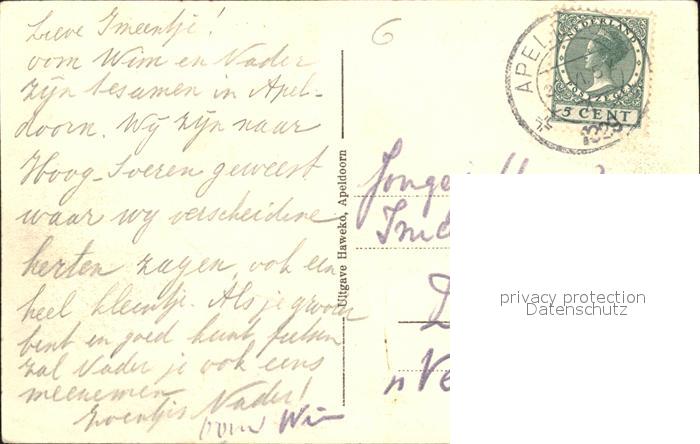 Lieve Imeentje!
oom Wim en Vader
zijn tesamen in Apel-
doorn. Wij zijn naar
Hoog-Soeren geweest
waar wij verscheidene
herten zagen, ook een
heel kleintje. Als je groter
bent en goed kunt fietsen
zal Vader je ook eens
meenemen
Zoentjes Vader!
oom Wim
6
Uitgave Haweko, Apeldoorn
APEL
1929
NEDERLAND
POSTZEGEL
5 CENT
privacy protection
Datenschutz